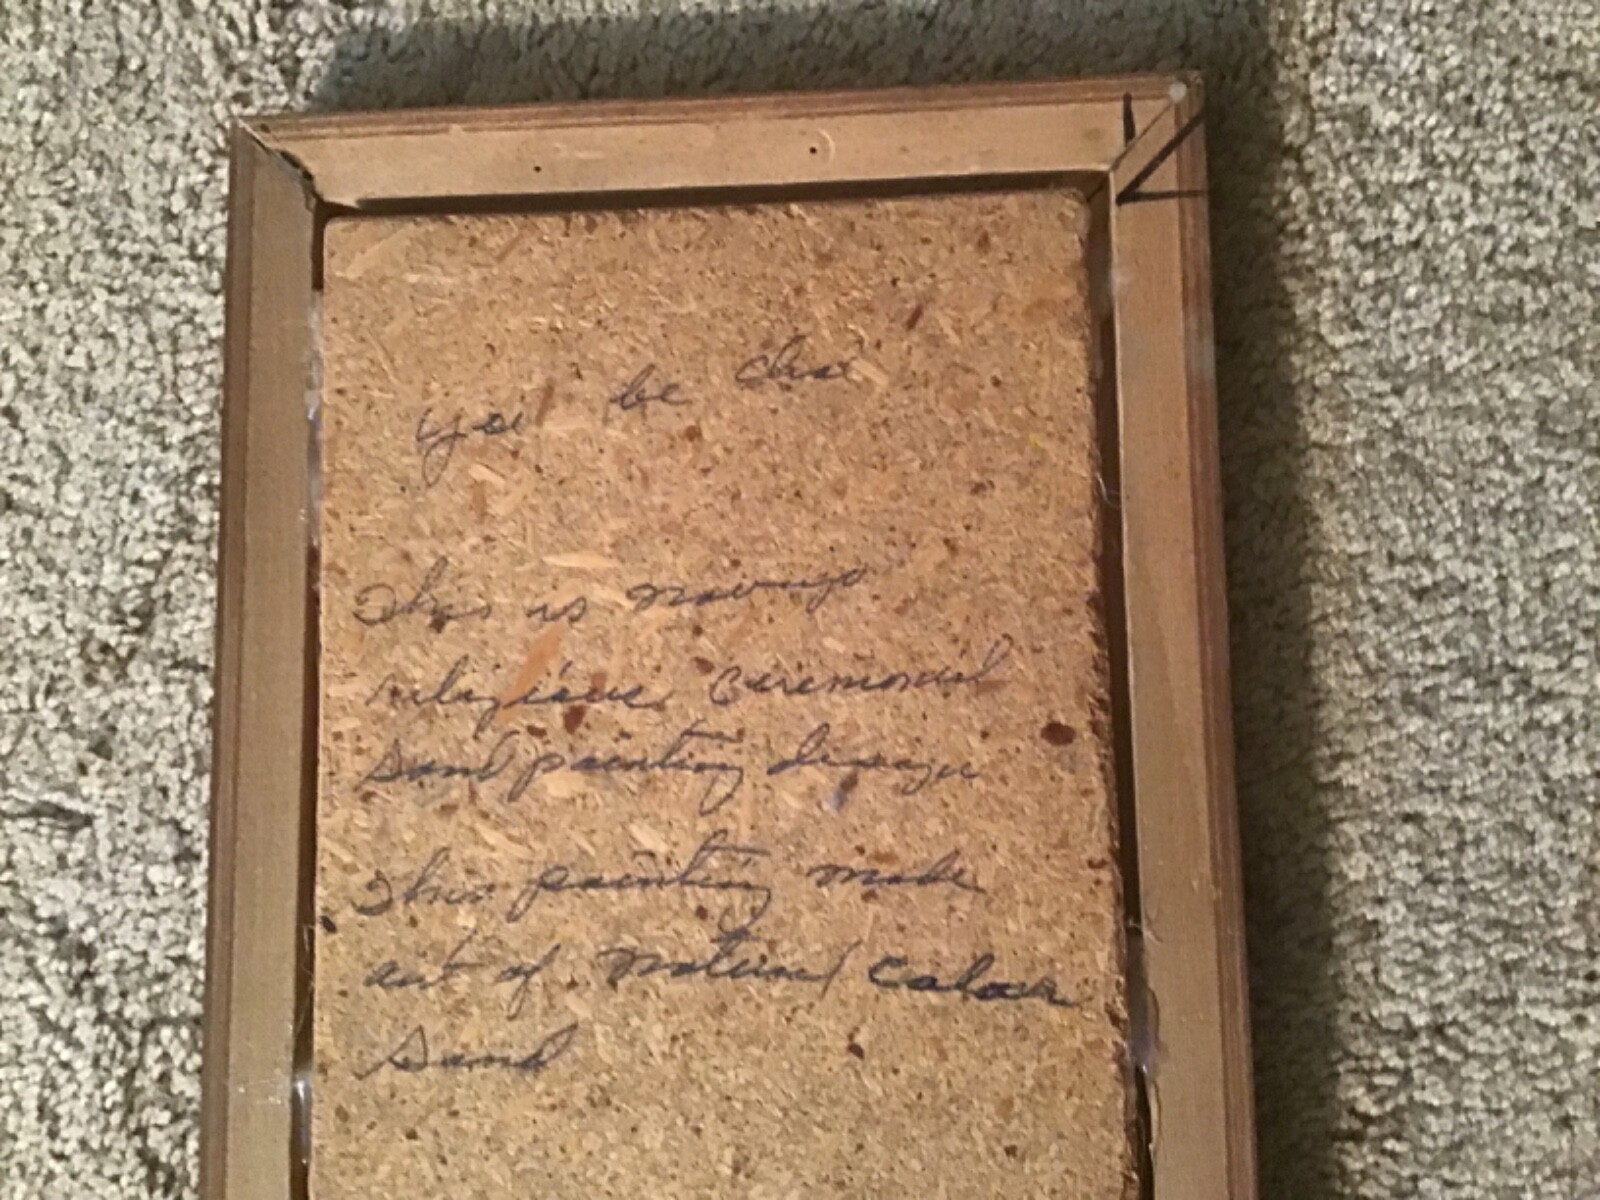 Yei be chai
This is Navajo
religious ceremonial
sand painting design
This painting made
out of natural colour
sand